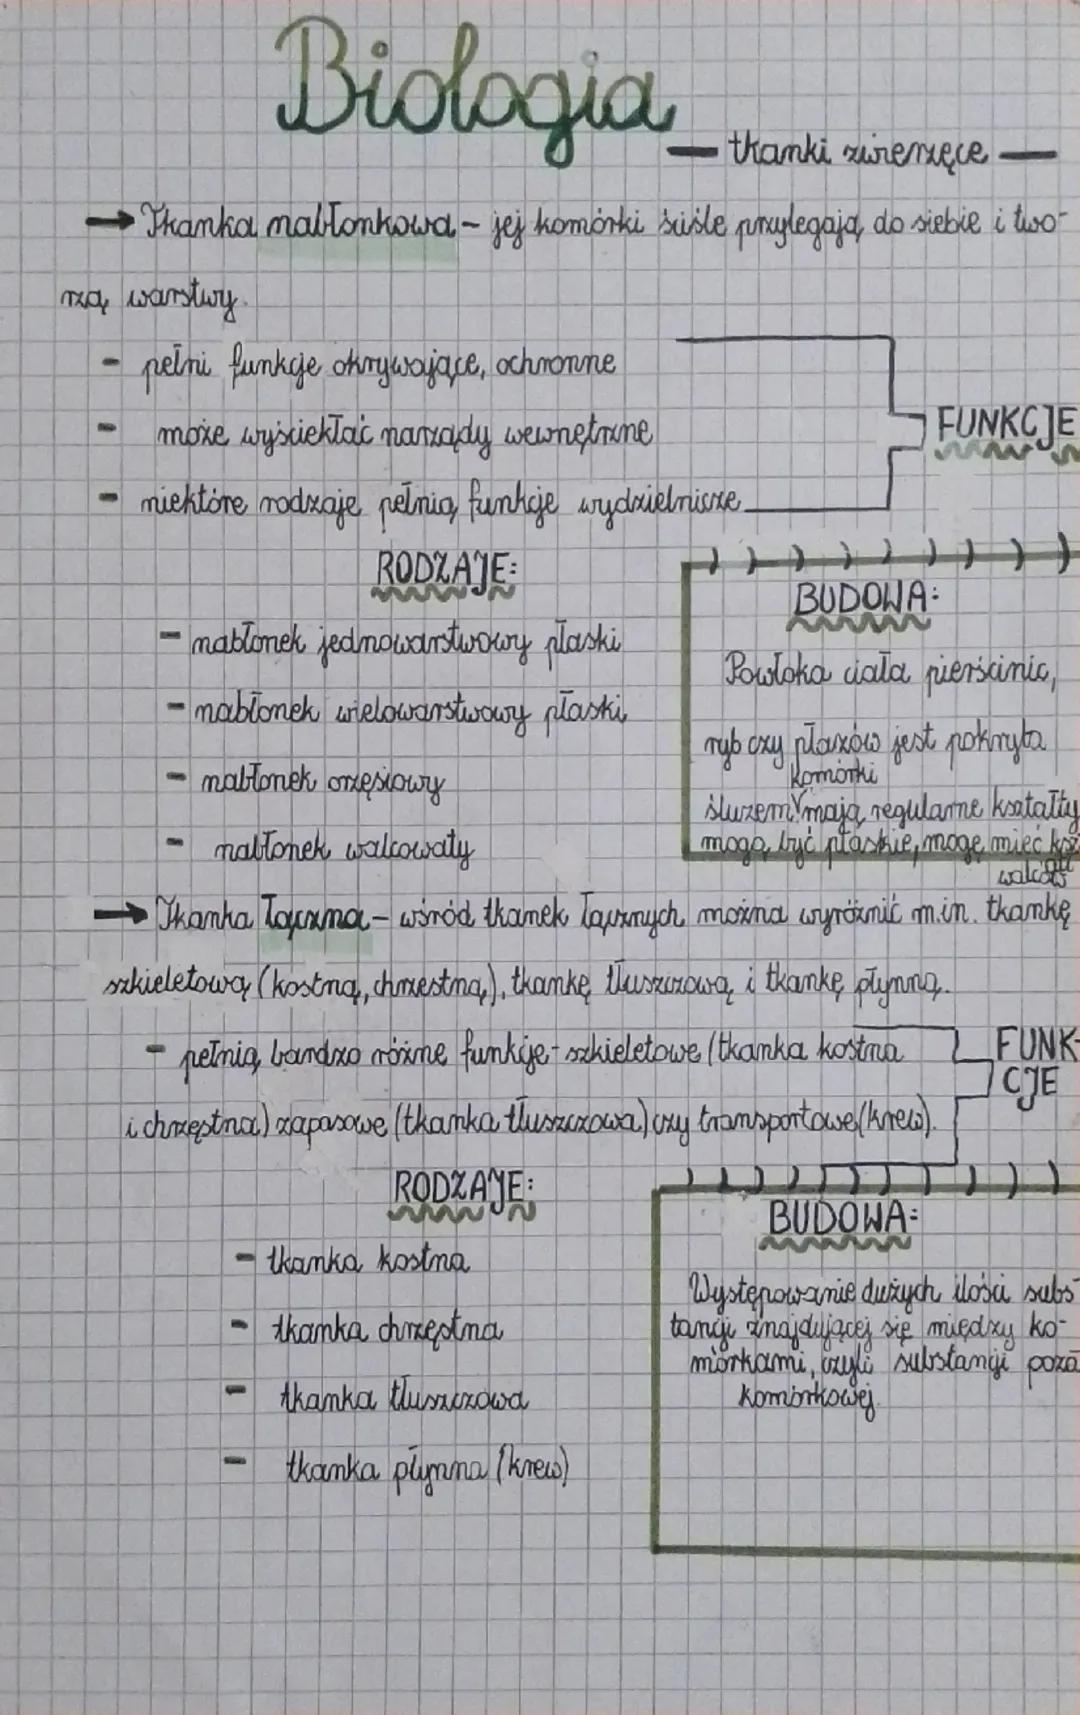 Biologia
— tkanki zwierzęce —
→ Tkanka nabłonkowa - jej komórki ściśle przylegają do siebie i two-
rzą warstwy.
- pełni funkcje okrywające, ochronne
- może wyściełać narządy wewnętrzne
- niektóre rodzaje pełnią funkcje wydzielnicze
FUNKCJE
RODZAJE:
- nabłonek jednowarstwowy płaski
- nabłonek wielowarstwowy płaski
- nabłonek orzęsiowy
- nabłonek walcowaty
BUDOWA:
Powłoka ciała pierścinic,
ryb czy płazów jest pokryta
komórki
śluzem. mają regularne kształty
mogą być płaskie, mogę mieć
→ Tkanka łączna - wśród tkanek łącznych można wyróżnić m.in. tkankę
szkieletową (kostną, chrzestną), tkankę tłuszczową i tkankę płynną.
- pełnią bardzo różne funkcje - szkieletowe (tkanka kostna
i chrzęstna) zapasowe (tkanka tłuszczowa) czy transportowe (krew).
FUNK-
CJE
RODZAJE:
- tkanka kostna
- tkanka chrzęstna
- tkanka tłuszczowa
- tkanka płynna (krew)
BUDOWA:
Występowanie dużych ilości subs-
tancji znajdującej się między ko-
mórkami, czyli substancji poza
komórkowej.